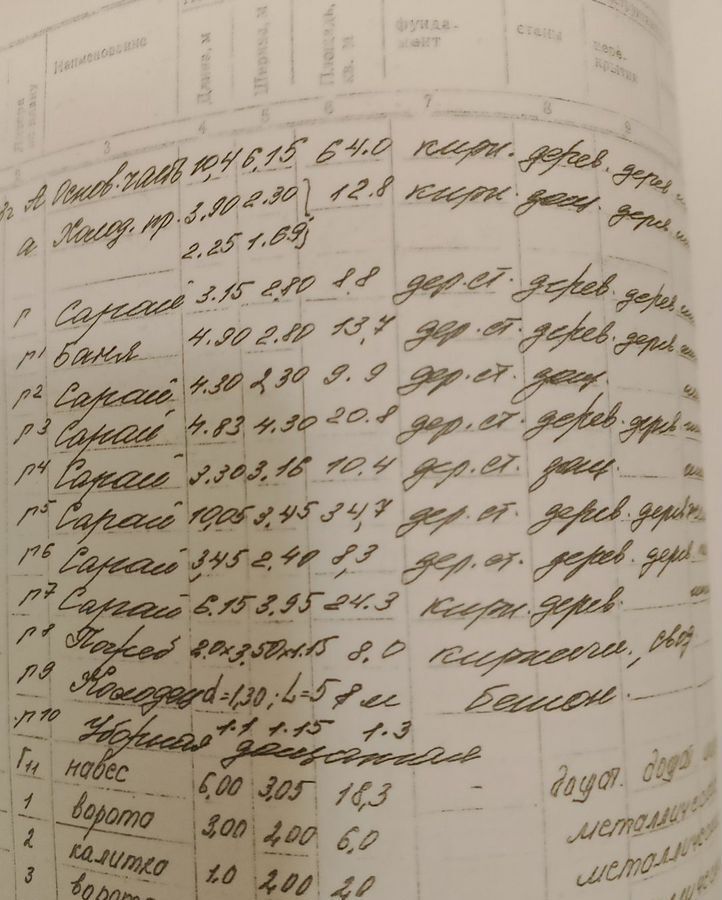 Наименование Длина, м Ширина, м Площадь, кв. м фунда- мент стены пере- крытия
3 4 5 6 7 8 9
А Основ. часть 10,4 6,15 64.0 кирп. дерев. дерев.
а Холод. пр. 3.90 2.90 12.8 кирп. дощ. дерев.
2.25 1.69
Г Сарай 3.15 2.80 8.8 дер.ст. дерев. дерев.
Г1 Баня 4.90 2.80 13,7 дер.ст. дерев. дерев.
Г2 Сарай 4.30 2,30 9.9 дер.ст. дощ.
Г3 Сарай 4.83 4.30 20.8 дер.ст. дерев. дерев
Г4 Сарай 3.30 3.16 10.4 дер.ст. дощ.
Г5 Сарай 10,05 3,45 34,7 дер.ст. дерев. дерев
Г6 Сарай 3,45 2.40 8,3 дер.ст. дерев. дерев
Г7 Сарай 6.15 3.95 24.3 кирп. дерев.
Г8 Погреб 2.0×3,50×1.15 8.0 кирпичн., свод
Г9 Колодец d=1,30; L=5 м бетон.
Г10 Уборная дощатая 1.1 1.15 1.3
Г11 навес 6,00 3,05 18,3 - дощат. дощат
1 ворота 3,00 2,00 6,0 металлическ
2 калитка 1.0 2,00 2,0 металлическ
3 ворота